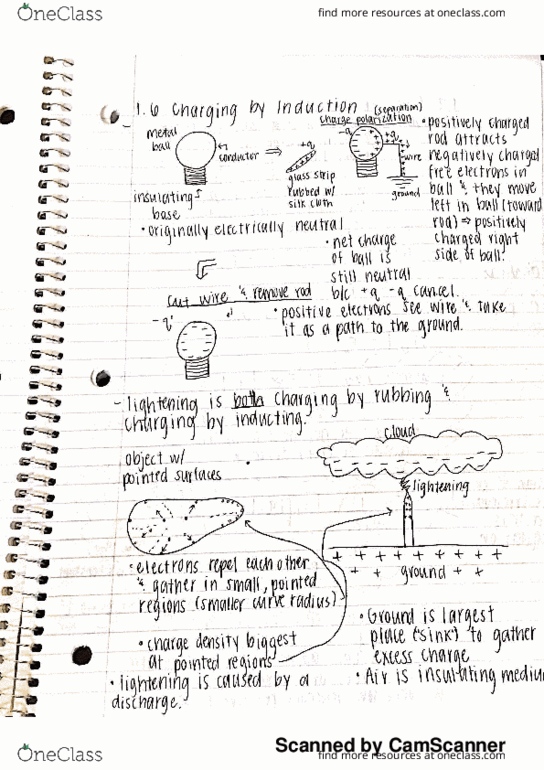 OneClass
find more resources at oneclass.com
1.6 Charging by Induction
(separation)
charge polarization
metal ball
conductor
insulating base
+q
glass strip rubbed w/ silk cloth
-q
+q
wire
ground
• positively charged
rod attracts
negatively charged
free electrons in
ball & they move
left in ball (toward
rod) ⇒ positively
charged right
side of ball.
• originally electrically neutral
• net charge
of ball is
still neutral
b/c +q -q cancel.
cut wire & remove rod
-q'
• positive electrons see wire & take
it as a path to the ground.
- lightening is both charging by rubbing &
charging by inducting.
object w/
pointed surfaces
cloud
lightening
+ + + + + + + + +
+ + ground + +
• electrons repel each other
& gather in small, pointed
regions (smaller curve radius)
• charge density biggest
at pointed regions
• lightening is caused by a
discharge.
• Ground is largest
place ("sink") to gather
excess charge
• Air is insulating medium
Scanned by CamScanner
OneClass
find more resources at oneclass.com